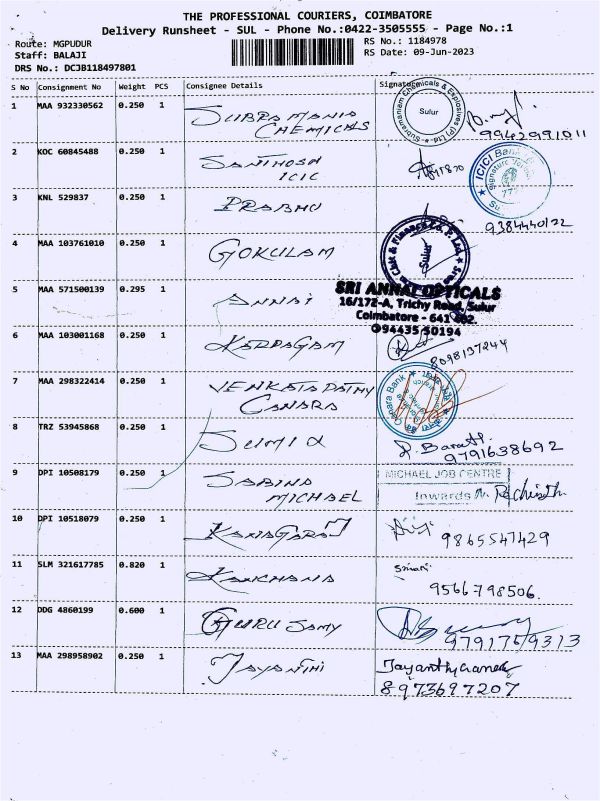 THE PROFESSIONAL COURIERS, COIMBATORE
Delivery Runsheet - SUL - Phone No.:0422-3505555 - Page No.:1
Route: MGPUDUR
RS No.: 1184978
Staff: BALAJI
RS Date: 09-Jun-2023
DRS No.: DCJB118497801
S No Consignment No Weight PCS Consignee Details Signature
1 MAA 932330562 0.250 1 SUBRAMANIA CHEMICALS
Subramaniam Chemicals & Explosives (P) Ltd.
Sulur
9942991011
2 KOC 60845488 0.250 1 SANTHOSH ICIC
ICICI Bank
Signature Verified
3 KNL 529837 0.250 1 PRABHU
9384440122
4 MAA 103761010 0.250 1 GOKULAM
Chit & Finance Co. P. Ltd.
Sulur
5 MAA 571500139 0.295 1 ANNAI
SRI ANNAI OPTICALS
16/172-A, Trichy Road, Sulur
Coimbatore - 641 402.
94435 50194
6 MAA 103001168 0.250 1 KARPAGAM
8098137244
7 MAA 298322414 0.250 1 VENKATAPATHY CANARA
Canara Bank
8 TRZ 53945868 0.250 1 SUMIA
P. Barathi.
9791638692
9 DPI 10508179 0.250 1 SABINA MICHAEL
MICHAEL JOB CENTRE
Inwards No.
10 DPI 10518079 0.250 1 KANAGARAJ
9865547429
11 SLM 321617785 0.820 1 KANCHANA
9566798506.
12 DDG 4860199 0.600 1 GURUSAMY
9791759313
13 MAA 298958902 0.250 1 JAYANTHI
8973697207